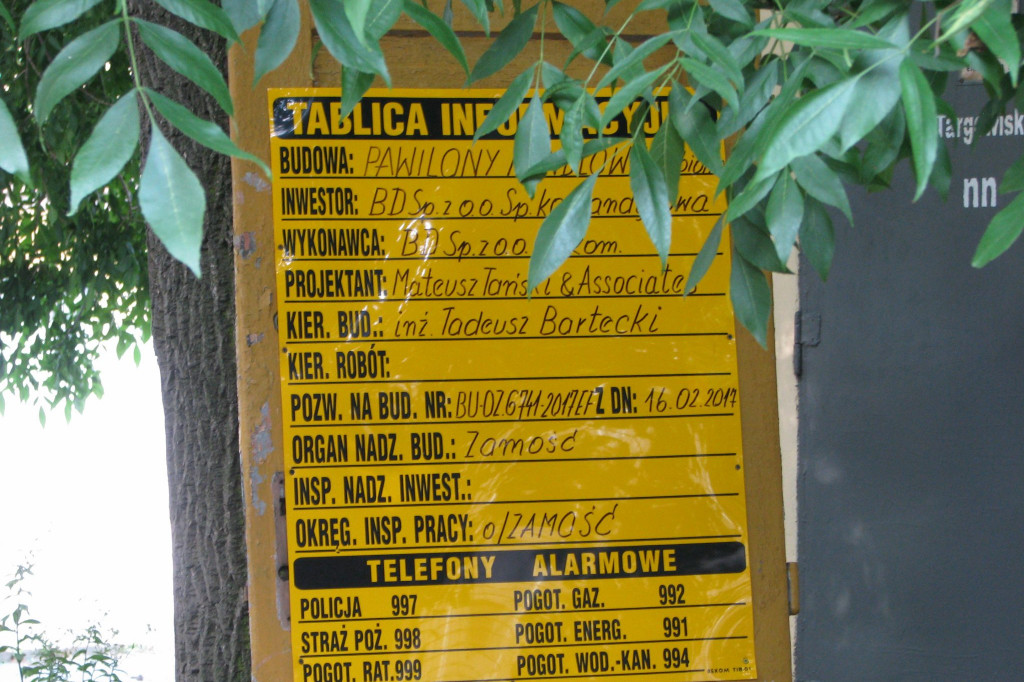 TABLICA INFORMACYJNA
BUDOWA: PAWILONY
INWESTOR: BD Sp. z o.o. Sp.
WYKONAWCA: BD Sp. z o.o. kom.
PROJEKTANT: Mateusz Tański & Associates
KIER. BUD.: inż. Tadeusz Bartecki
KIER. ROBÓT:
POZW. NA BUD. NR: BU-OZ.6741-2017EF Z DN: 16.02.2017
ORGAN NADZ. BUD.: Zamość
INSP. NADZ. INWEST.:
OKRĘG. INSP. PRACY: o/ZAMOŚĆ
TELEFONY ALARMOWE
POLICJA 997 POGOT. GAZ. 992
STRAŻ POŻ. 998 POGOT. ENERG. 991
POGOT. RAT. 999 POGOT. WOD.-KAN. 994
Targowisk
nn